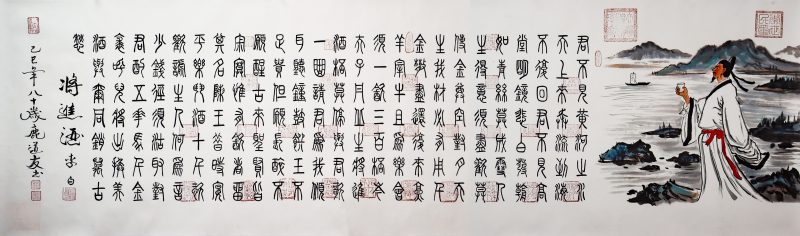 君不見黃河之水
天上來奔流到海
不復回君不見高
堂明鏡悲白髮朝
如青絲暮成雪人
生得意須盡歡莫
使金尊空對月天
生我材必有用千
金散盡還復來烹
羊宰牛且為樂會
須一飲三百桮岑
夫子丹丘生將進
酒桮莫停與君歌
一曲請君為我傾
耳聽鐘鼓饌玉不
足貴但願長醉不
願醒古來聖賢皆
寂寞惟有飲者留
其名陳王昔時宴
平樂斗酒十千恣
歡謔主人何為言
少錢徑須沽取對
君酌五花馬千金
裘呼兒將出換美
酒與爾同銷萬古
愁
將進酒 李白
乙巳年八十歲鹿道友书